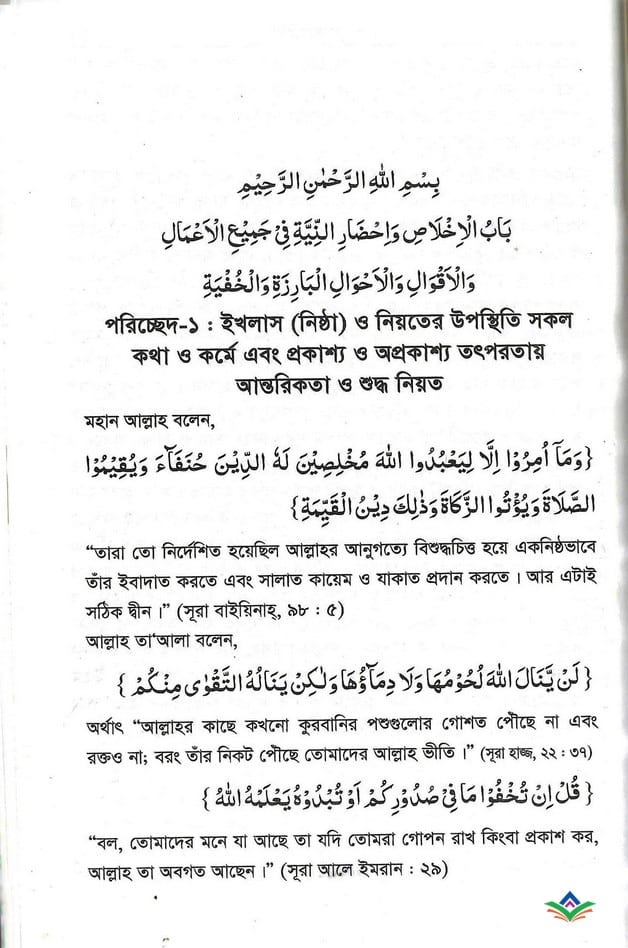 بِسْمِ اللهِ الرَّحْمٰنِ الرَّحِيْمِ
بَابُ الْاِخْلَاصِ وَاِحْضَارِ النِّيَّةِ فِىْ جَمِيْعِ الْاَعْمَالِ
وَالْاَقْوَالِ وَالْاَحْوَالِ الْبَارِزَةِ وَالْخُفْيَةِ
পরিচ্ছেদ-১ : ইখলাস (নিষ্ঠা) ও নিয়তের উপস্থিতি সকল
কথা ও কর্মে এবং প্রকাশ্য ও অপ্রকাশ্য তৎপরতায়
আন্তরিকতা ও শুদ্ধ নিয়ত
মহান আল্লাহ বলেন,
{وَمَاۤ اُمِرُوْا اِلَّا لِيَعْبُدُوا اللهَ مُخْلِصِيْنَ لَهُ الدِّيْنَ حُنَفَآءَ وَيُقِيْمُوْا
الصَّلَاةَ وَيُؤْتُوا الزَّكَاةَ وَذٰلِكَ دِيْنُ الْقَيِّمَةِ}
“তারা তো নির্দেশিত হয়েছিল আল্লাহর আনুগত্যে বিশুদ্ধচিত্ত হয়ে একনিষ্ঠভাবে
তাঁর ইবাদাত করতে এবং সালাত কায়েম ও যাকাত প্রদান করতে। আর এটাই
সঠিক দ্বীন।” (সূরা বাইয়িনাহ, ৯৮ : ৫)
আল্লাহ তা'আলা বলেন,
{ لَنْ يَّنَالَ اللهَ لُحُوْمُهَا وَلَا دِمَآؤُهَا وَلٰكِنْ يَنَالُهُ التَّقْوٰى مِنْكُمْ }
অর্থাৎ “আল্লাহর কাছে কখনো কুরবানির পশুগুলোর গোশত পৌঁছে না এবং
রক্তও না; বরং তাঁর নিকট পৌঁছে তোমাদের আল্লাহ ভীতি।” (সূরা হাজ্জ, ২২ : ৩৭)
{ قُلْ اِنْ تُخْفُوْا مَا فِىْ صُدُوْرِكُمْ اَوْ تُبْدُوْهُ يَعْلَمْهُ اللهُ }
“বল, তোমাদের মনে যা আছে তা যদি তোমরা গোপন রাখ কিংবা প্রকাশ কর,
আল্লাহ তা অবগত আছেন।” (সূরা আলে ইমরান : ২৯)